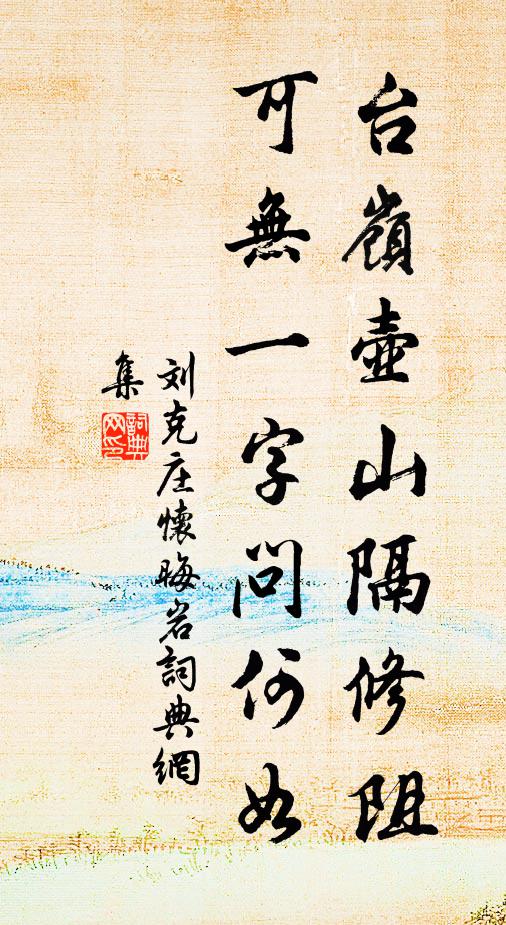 台嶺壺山隔修阻
可無一字問何如
刘克庄懷晦岩詞典網
集
詞典網印